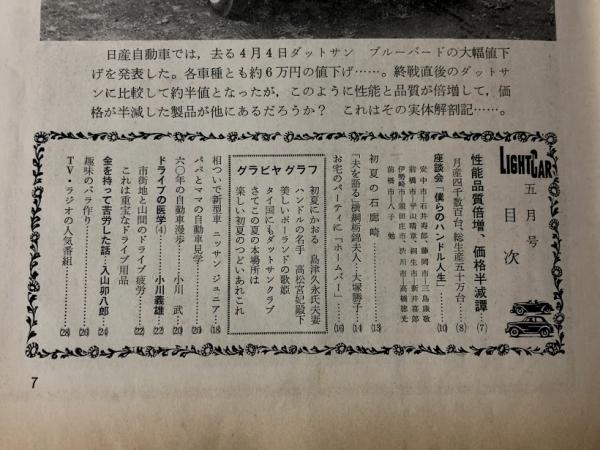 日産自動車では，去る4月4日ダットサン　ブルーバードの大幅値下
げを発表した。各車種とも約6万円の値下げ……。終戦直後のダットサ
ンに比較して約半値となったが，このように性能と品質が倍増して，価
格が半減した製品が他にあるだろうか？　これはその実体解剖記……。
LIGHT CAR
五月号
目次
性能品質倍増、価格半減譚……(7)
月産四千数百台、総生産五十万台……(8)
座談会「僕らのハンドル人生」……(10)
安中市・石井寿郎、藤岡市・三島康敬
前橋市・平山晴章、桐生市・新井喜郎
伊勢崎市・須田庄市、渋川市・高橋徳光
前橋市・八子 勉
初夏の石廊崎……(13)
「夫を語る」横綱栃錦夫人・大塚勝子……(14)
お宅のパーティに「ホームバー」……(16)
グラビヤグラフ
初夏にかおる　島津久永氏夫妻
ハンドルの名手　高松宮妃殿下
美しいポーランドの歌姫
タイ国にもダットサンクラブ
さてこの夏の本場所は
楽しい初夏のつどいあれこれ
相ついで新型車　ニッサン　ジュニア……(18)
パパとママの自動車見学……(19)
六〇年の自動車漫歩……小川　武……(20)
ドライブの医学(4)……小川義雄……(22)
市街地と山間のドライブ疲労……(22)
これは重宝なドライブ用品
金を持って苦労した話…入山卯八郎……(24)
趣味のバラ作り……(26)
TV・ラジオの人気番組……(28)
7